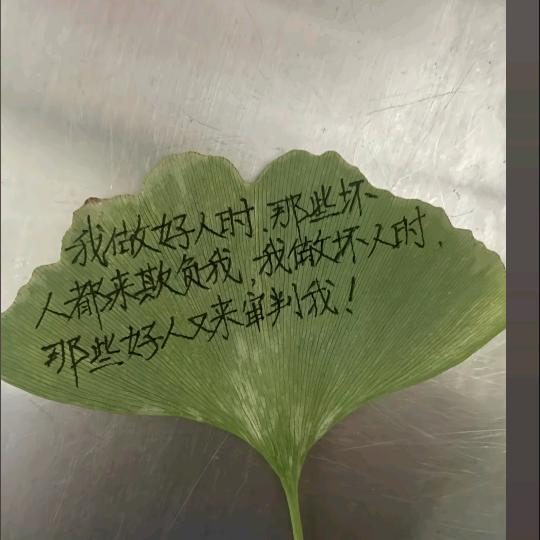 我做好人时,那些坏
人都来欺负我,我做坏人时,
那些好人又来审判我!